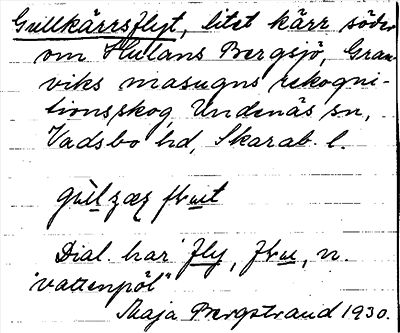 Gullkärrsflyt, litet kärr söder
om Hulans Bergsjö, Gran-
viks masugns rekogni-
tionsskog, Undenäs sn,
Vadsbo hd, Skarab. l.
Dial. har fly, n.
"vattenpöl"
Maja Bergstrand 1930.